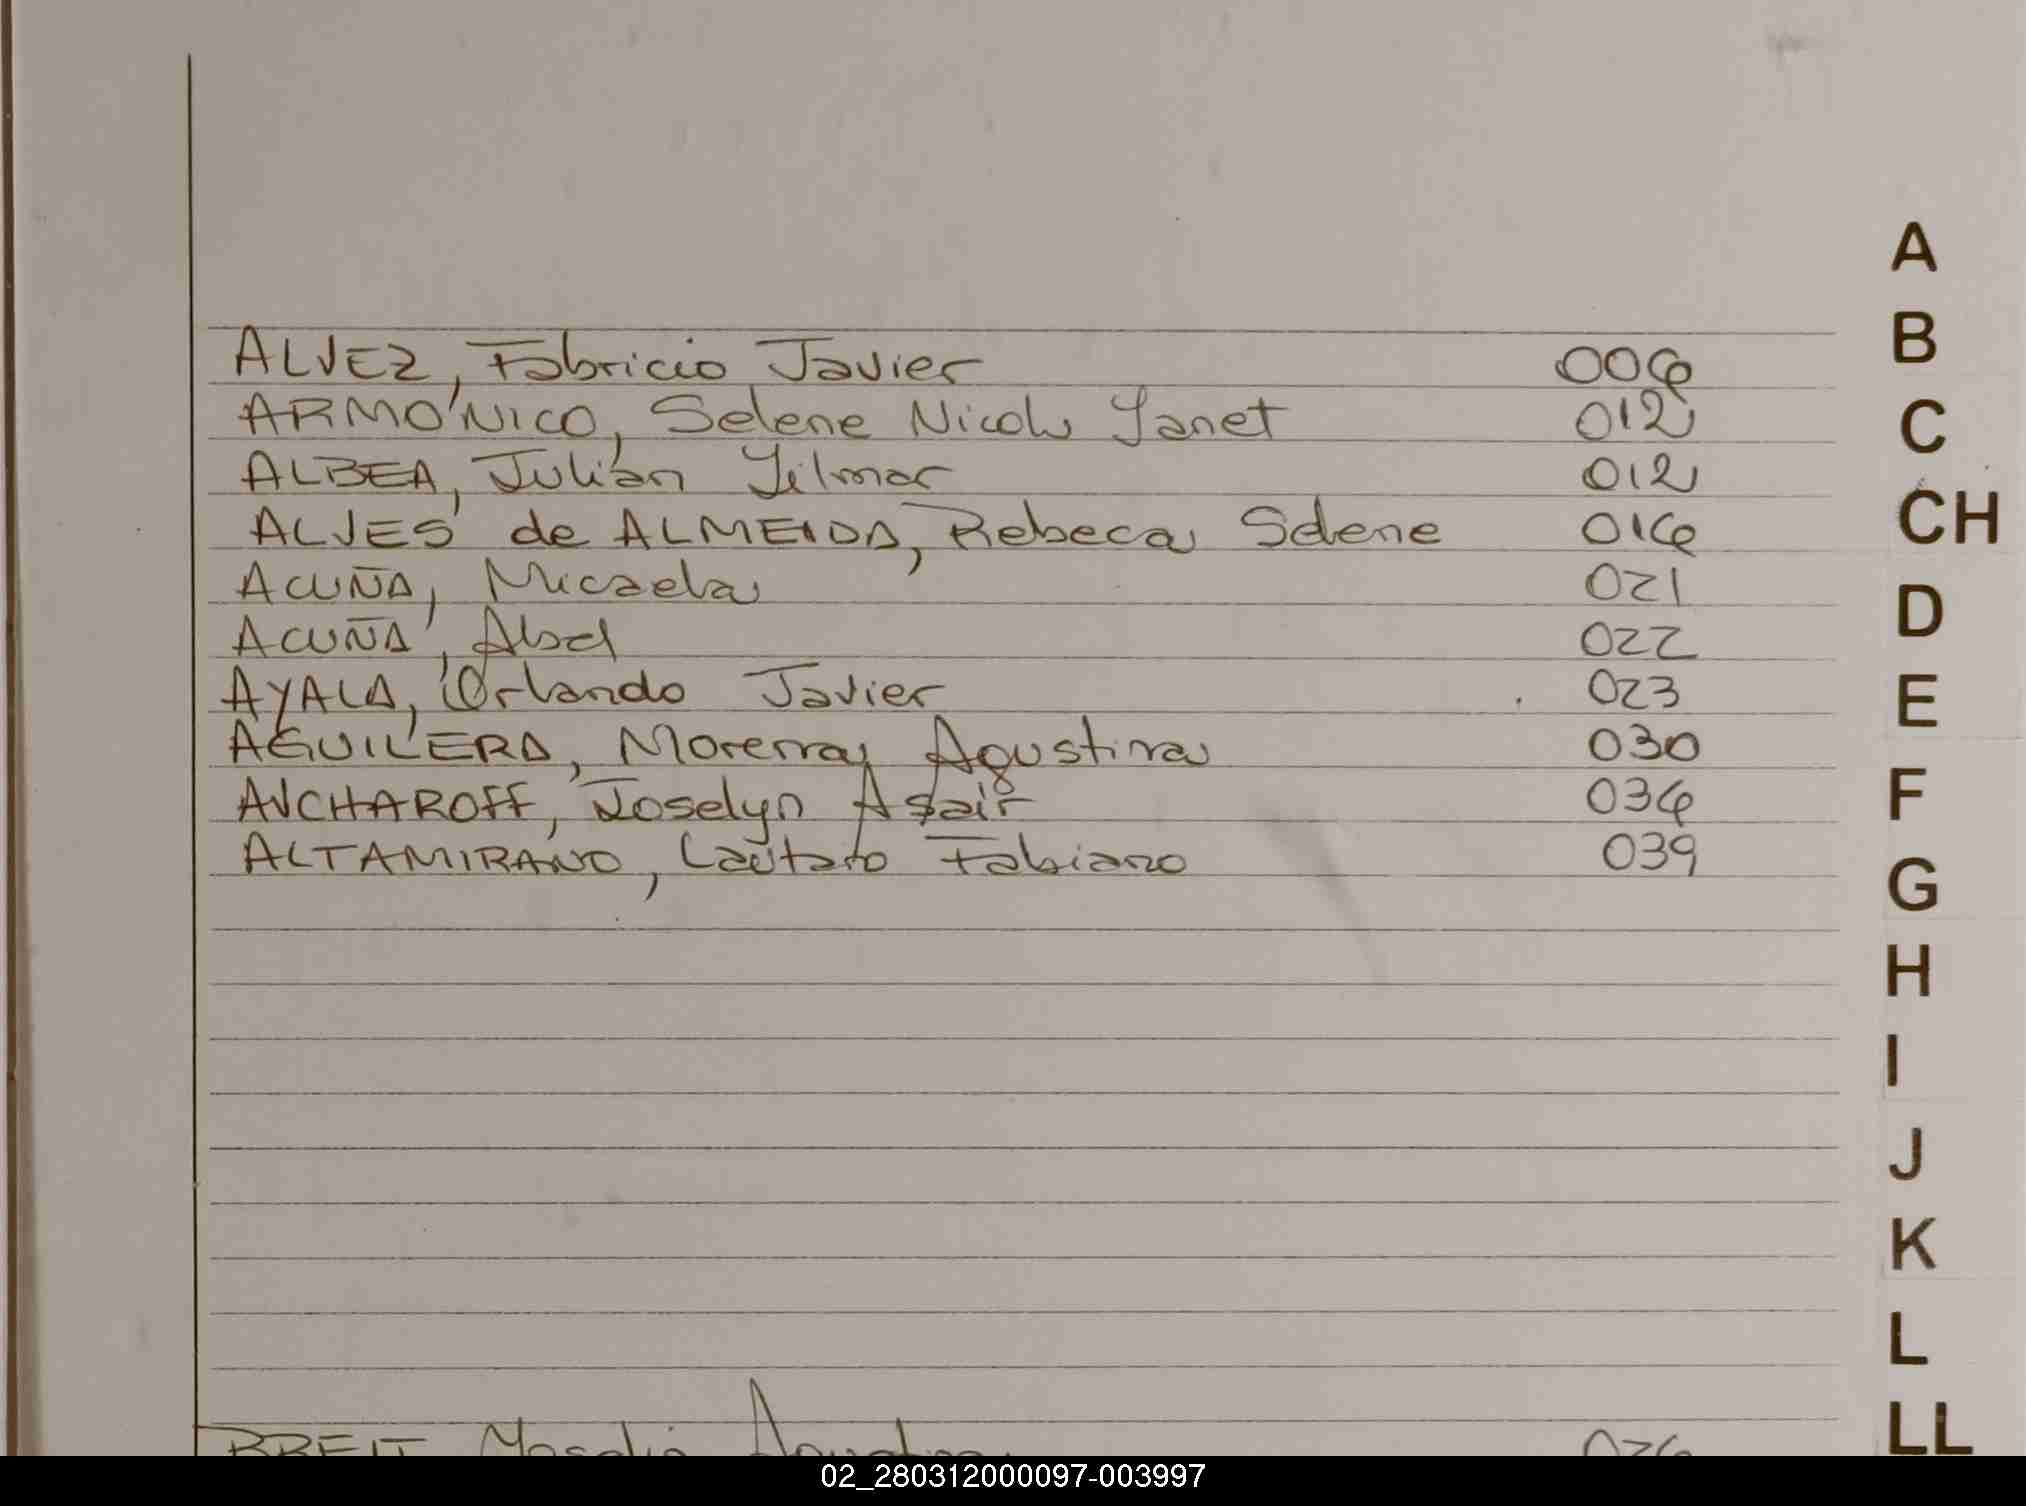 A
B
C
CH
D
E
F
G
H
I
J
K
L
LL
ALVEZ, Fabricio Javier 006
ARMÓNICO, Selene Nicole Yanet 012
ALBEA, Julián Yilmar 012
ALVES de ALMEIDA, Rebeca Selene 016
ACUÑA, Micaela 021
ACUÑA, Abel 022
AYALA, Orlando Javier 023
AGUILERA, Morena Agustina 030
AVCHAROFF, Joselyn 036
ALTAMIRANO, Lautaro Fabiano 039
BREIT
02_280312000097-003997